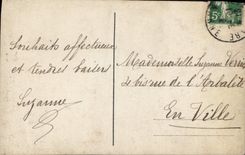 Souhaits affectueux
et tendres baisers
Suzanne
Mademoiselle Suzanne
bis rue de l'Arbalète
En Ville
5